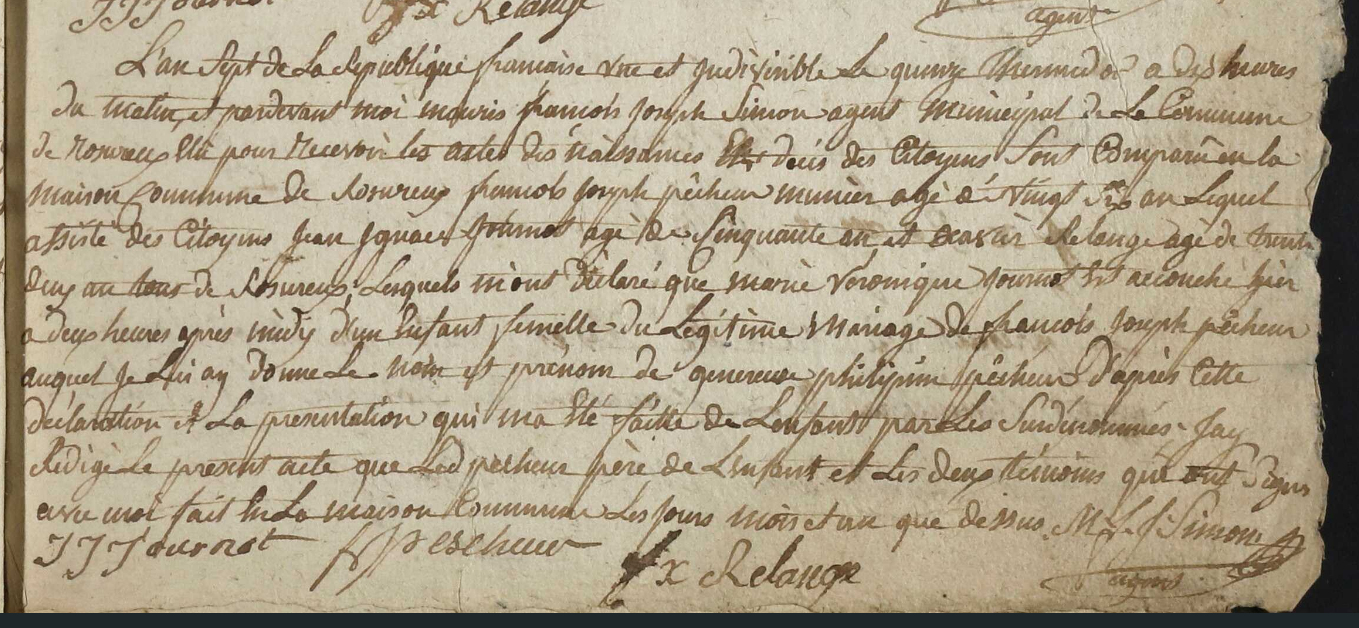 J J Journot f x Relange
agent
L'an Sept de La Republique francaise vne et Jndivisible Le quinze Thermidor a dix heures
du matin et pardevant moi mauris francois Joseph Simon agent Municipal de La Commune
de Rosureux Elu pour Recevoir les actes des naissances Et deces des Citoyens Sont Comparu en la
maison Commune de Rosureux francois Joseph pêcheur munier agé de vingt Six an Lequel
assisté des Citoyens Jean Jgnace Journot agé de Cinquante an et Exavier Relange agé de trente
deux an tous de Rosureux, Lesquels m'ont Déclaré que marie veronique Journot Est accouché hier
a deux heures après midy d'un Enfant femelle du Légitime Mariage de francois Joseph pêcheur
auquel Je Lui ay Donné Le nom et prénom de genereuse philipine pêcheur D'après Cette
déclaration et La presentation qui ma Eté faitte de L'enfant par Les Surdenommés Jay
Rédigé Le present acte que Led pecheur père de L'enfant et Les deux témoins qui ont Signé
avec moi fait En La maison Commune Les Jours mois et an que dessus. M. f. J. Simon
J J Journot f J pescheur
f x Relange
agent